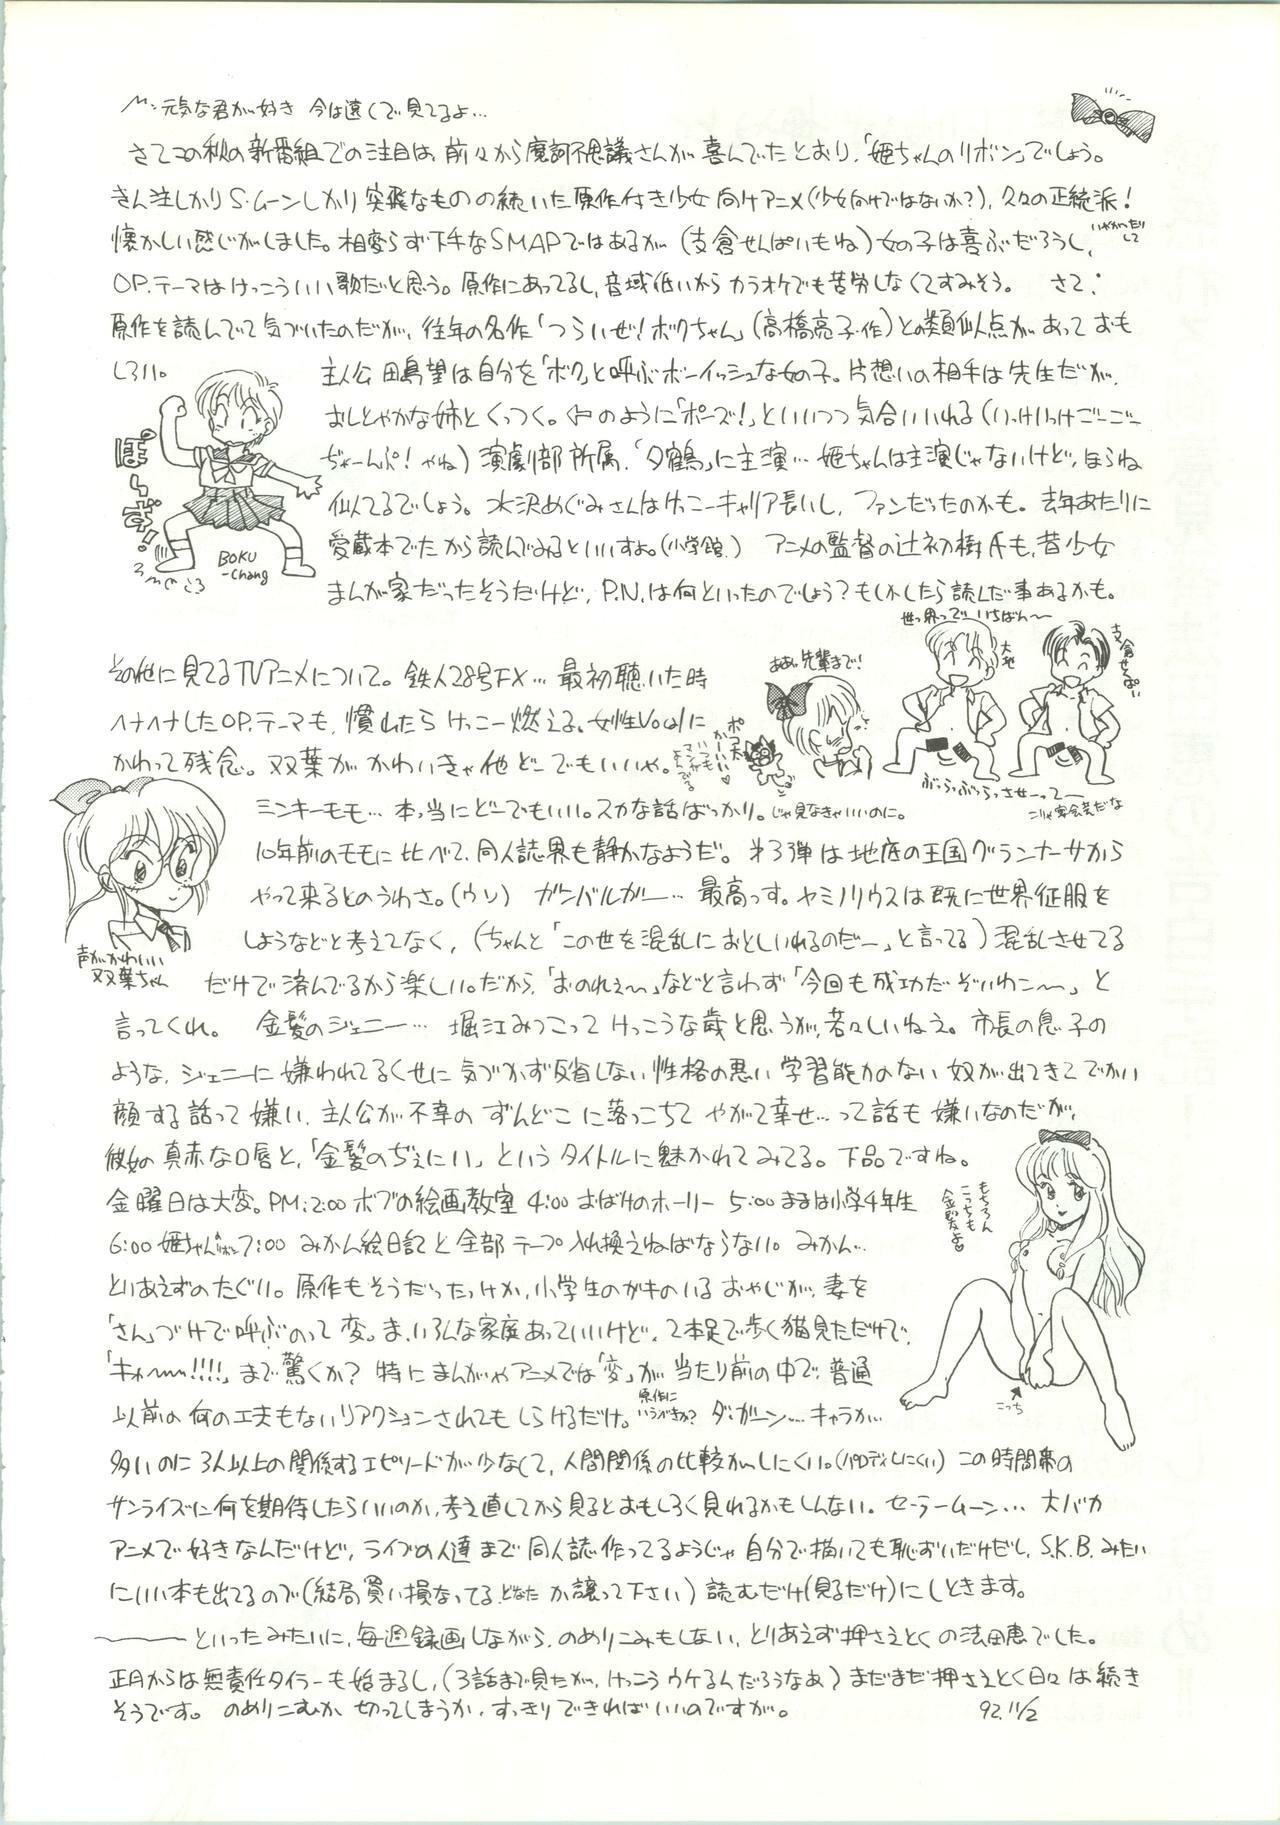 〽元気な君が好き 今は遠くで見てるよ…
さてこの秋の新番組での注目は、前々から魔訶不思議さんが喜んでたとおり、「姫ちゃんのリボン」でしょう。
きん注しかりS.ムーンしかり突飛なものの続いた原作付き少女向けアニメ(少女向けではないか?)、久々の正統派!
懐かしい感じがしました。相変らず下手なSMAPではあるが(支倉せんぱいもね)女の子は喜ぶだろうし、
いやがったりして
OP.テーマはけっこういい歌だと思う。原作にあってるし、音域低いからカラオケでも苦労しなくてすみそう。 さて、
原作を読んでて気づいたのだが、往年の名作「つらいぜ!ボクちゃん」(高橋亮子・作)との類似点があっておも
しろい。
主人公田島望は自分を「ボク」と呼ぶボーイッシュな女の子。片想いの相手は先生だが、
おしとやかな姉とくっつく。 のように「ポーズ!」といいつつ気合いいれる(いけいけごーごー
じゃーんぷ!やね)演劇部所属、「夕鶴」に主演…姫ちゃんは主演じゃないけど、ほらね
似てるでしょう。水沢めぐみさんはけっこーキャリア長いし、ファンだったのかも。去年あたりに
愛蔵本でたから読んでみるといいすよ。(小学館) アニメの監督の辻初樹氏も、昔少女
まんが家だったそうだけど、P.N.は何といったのでしょう?もしかしたら読んだ事あるかも。
ぽーず!
BOKU
-chang
世っ界ってーいちばんー〜
大地
支倉せんぱい
ああっ先輩まで!
ポコ太かーいい♡
ぶっらっぶっらっさせーってー
こりゃ宴会芸だな
その他に見てるTVアニメについて。鉄人28号FX…最初聴いた時
ヘナヘナしたOP.テーマも、慣れたらけっこー燃える。女性Vocalに
かわって残念。双葉がかわいきゃ他どーでもいいや。
ミンキーモモ… 本っ当にどーでもいい。スカな話ばっかり。じゃ見なきゃいいのに。
10年前のモモに比べて、同人誌界も静かなようだ。第3弾は地底の王国グランナーサから
やって来るとのうわさ。(ウソ) ガンバルガー… 最高っす。ヤミノリウスは既に世界征服を
しようなどと考えてなく、(ちゃんと「この世を混乱におとしいれるのだー」と言ってる)混乱させてる
声がかわいい
双葉ちゃん
だけで済んでるから楽しい。だから、「おのれぇ〜」などと言わず「今回も成功だぞいわこ〜〜」と
言ってくれ。 金髪のジェニー… 堀江みつこってけっこうな歳と思うが、若々しいねえ。市長の息子の
ような、ジェニーに嫌われてるくせに気づかず反省しない性格の悪い学習能力のない奴が出てきてでかい
顔する話って嫌い。主人公が不幸のずんどこに落っこちてやがて幸せ…って話も嫌いなのだが、
彼女の真赤な口唇と、「金髪のぢぇにい」というタイトルに魅かれてみてる。下品ですね。
金曜日は大変。PM:2:00ボブの絵画教室 4:00おばけのホーリー 5:00ままは小学4年生
6:00姫ちゃんのリボン7:00 みかん絵日記と全部テープ入れ換えねばならない。みかん…
とりあえずのたぐい。原作もそうだったっけか、小学生のガキのいるおやじが、妻を
「さん」づけで呼ぶのって変。ま、いろんな家庭あっていいけど、2本足で歩く猫見ただけで、
「キャ〜〜!!!!」まで驚くか?特にまんがやアニメでは「変」が当たり前の中で、普通
以前の何の工夫もないリアクションされてもしらけるだけ。 ダ・ガーン…キャラが…
原作に
いうがきか?
もちろん
こっちも
金髪よ♡
こっち
多いのに3人以上の関係するエピソードが少なくて、人間関係の比較がしにくい。(パロディしにくい) この時間帯の
サンライズに何を期待したらいいのか、考え直してから見るとおもしろく見れるかもしんない。セーラームーン… 大バカ
アニメで好きなんだけど、ライブの人達まで同人誌作ってるようじゃ自分で描いても恥ずいだけだし、S.K.B.みたい
にいい本も出てるので(結局買い損なってる、どなたか譲って下さい)読むだけ(見るだけ)にしときます。
といったみたいに、毎週録画しながら、のめりこみもしない、とりあえず押さえとくの法田恵でした。
正月からは無責任タイラーも始まるし、(3話まで見たが、けっこうウケるんだろうなぁ)まだまだ押さえとく日々は続き
そうです。 のめりこむか切ってしまうか、すっきりできればいいのですが。
92.11/2